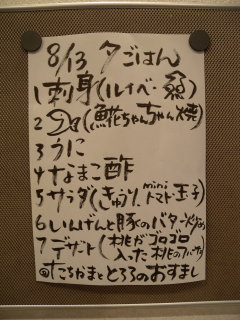 8/13 夕ごはん
1 刺身(ルイベ・
2 (鮭ちゃんちゃん焼)
3 うに
4 なまこ酢
5 サラダ(きゅうり、miniトマト、玉子)
6 いんげんと豚のバター炒め
7 デザート(桃がゴロゴロ
入った桃の
@たちかまととろろのおすまし